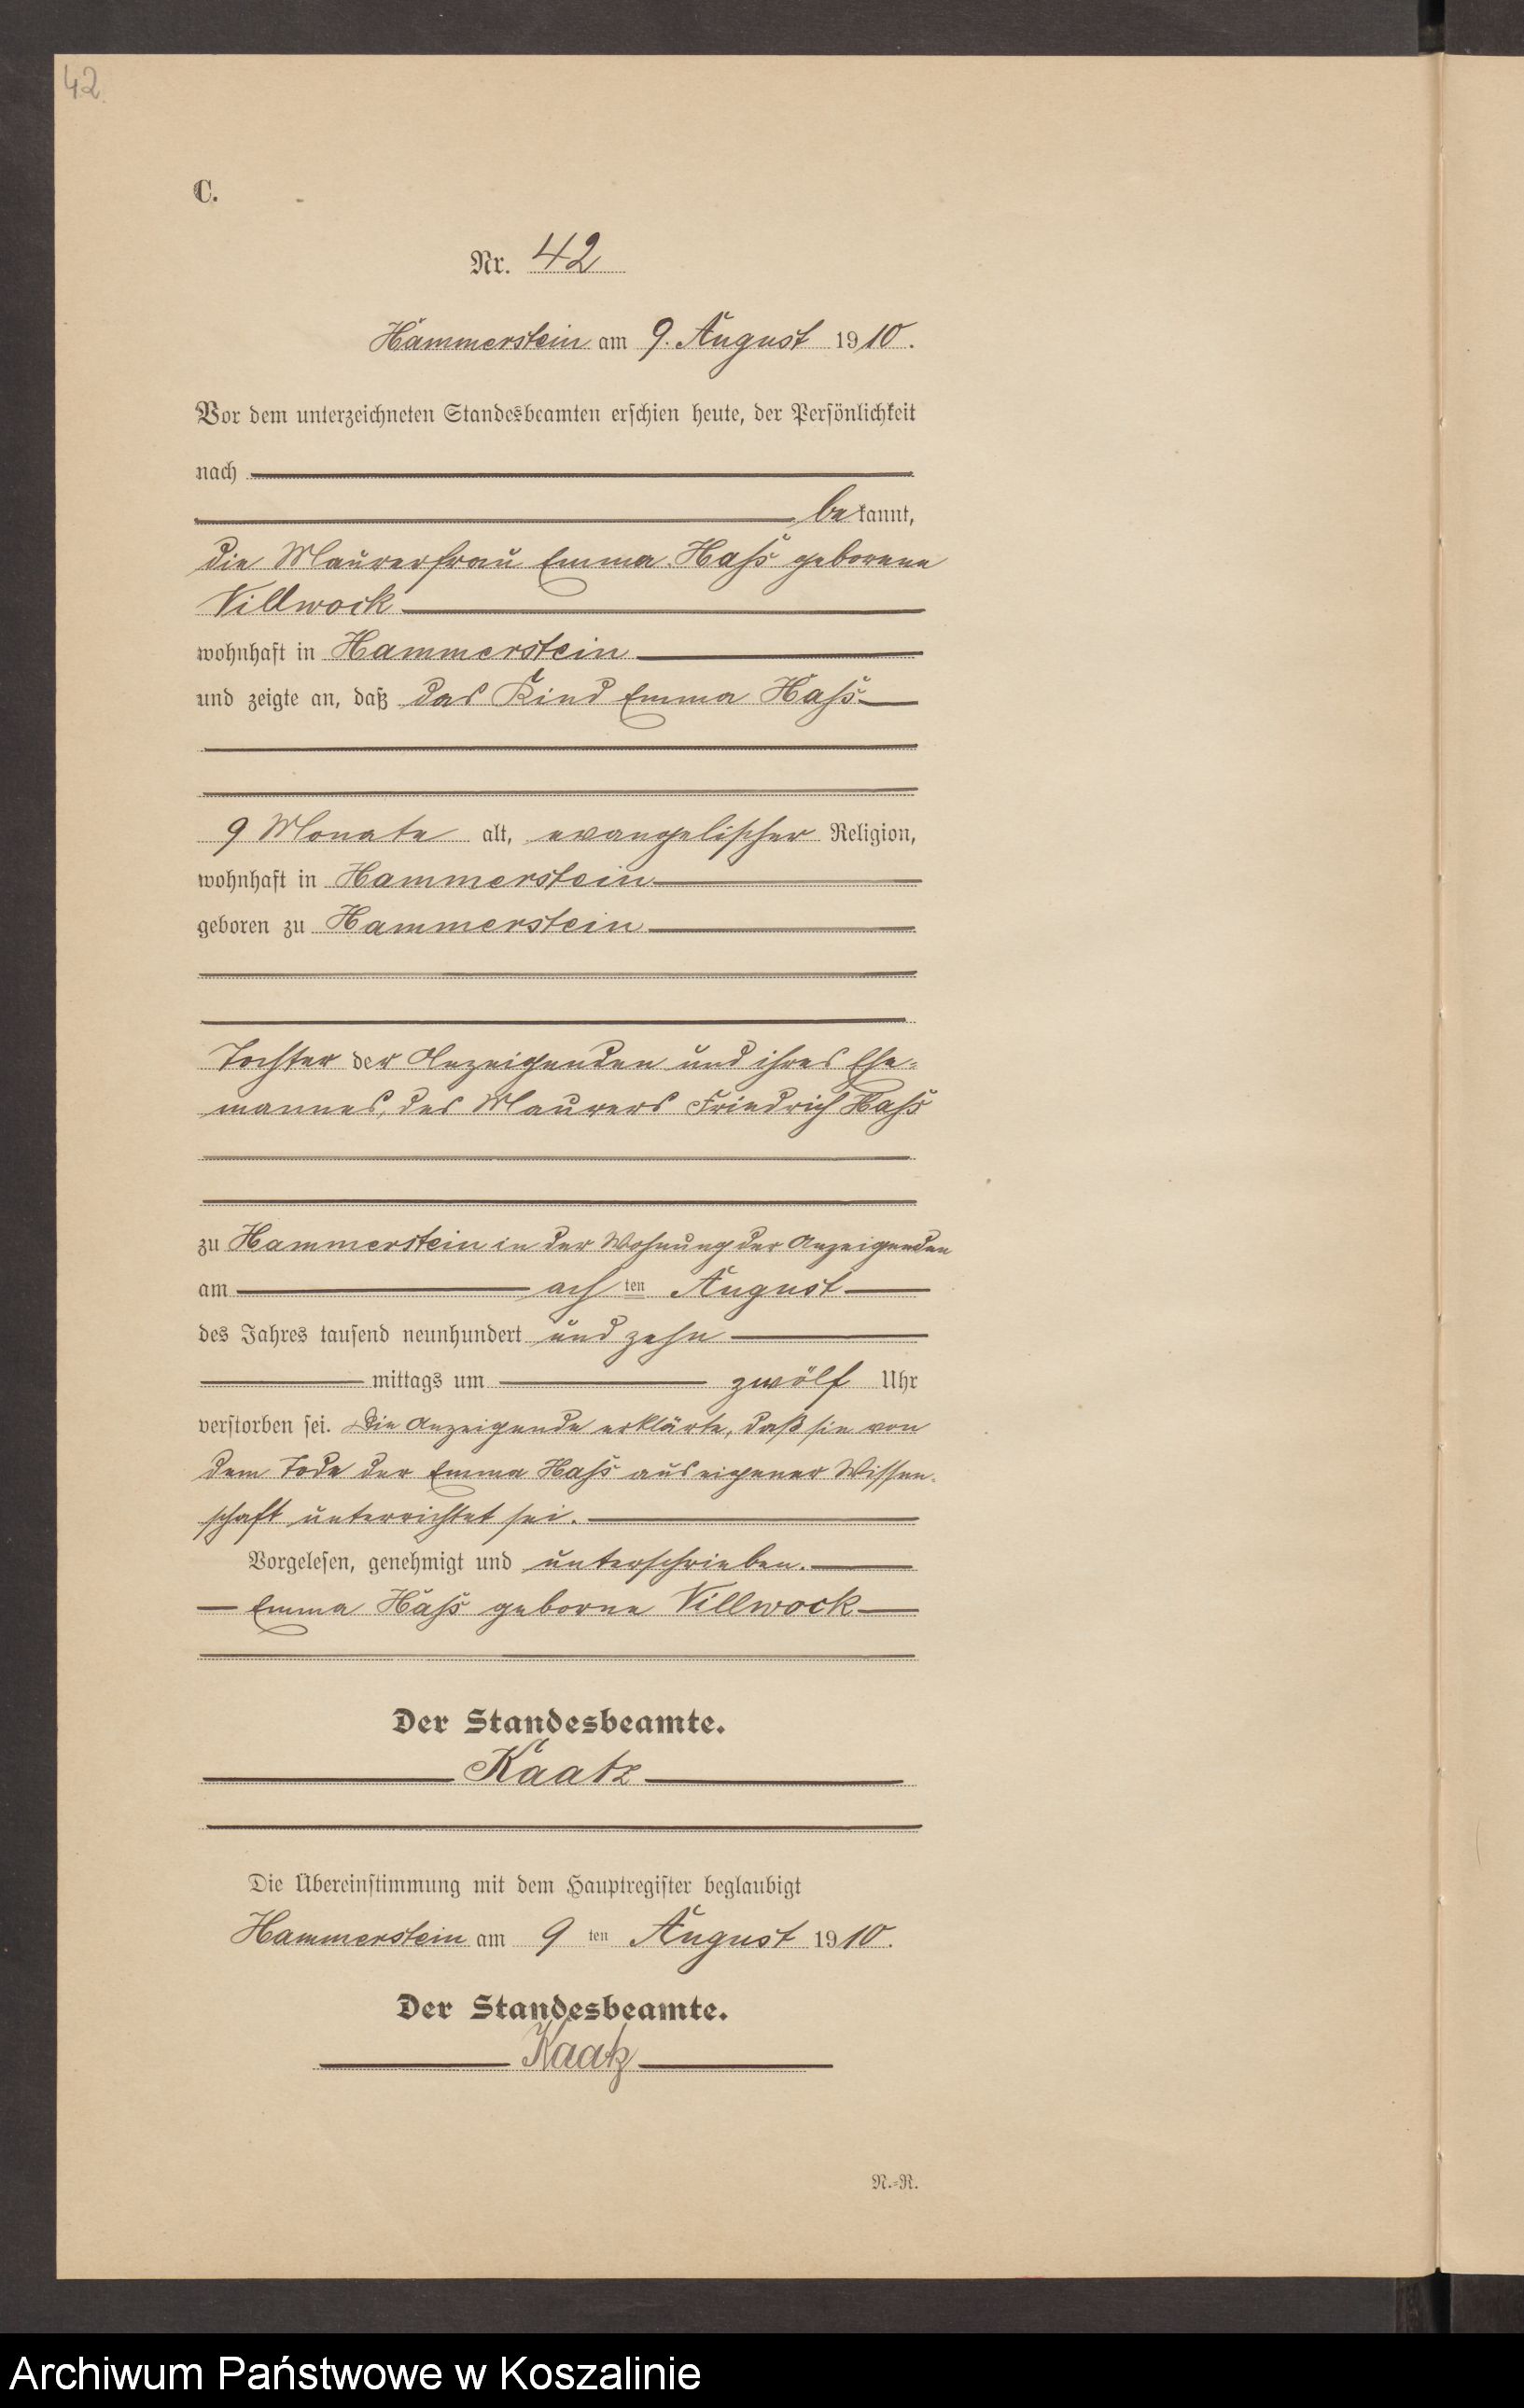 42
C.
Nr. 42
Hammerstein am 9. August 1910.
Vor dem unterzeichneten Standesbeamten erschien heute, der Persönlichkeit
nach
bekannt,
die Maurerfrau Emma Haß geborene
Villwock
wohnhaft in Hammerstein
und zeigte an, daß das Kind Emma Haß
9 Monate alt, evangelischer Religion,
wohnhaft in Hammerstein
geboren zu Hammerstein
Tochter der Anzeigenden und ihres Ehe-
mannes, des Maurers Friedrich Haß
zu Hammerstein in der Wohnung der Anzeigenden
am achten August
des Jahres tausend neunhundert und zehn
mittags um zwölf Uhr
verstorben sei. Die Anzeigende erklärte, daß sie von
dem Tode der Emma Haß aus eigener Wissen-
schaft unterrichtet sei.
Vorgelesen, genehmigt und unterschrieben.
Emma Haß geborne Villwock
Der Standesbeamte.
Kaatz
Die Übereinstimmung mit dem Hauptregister beglaubigt
Hammerstein am 9ten August 1910.
Der Standesbeamte.
Kaatz
N.-R.
Archiwum Państwowe w Koszalinie